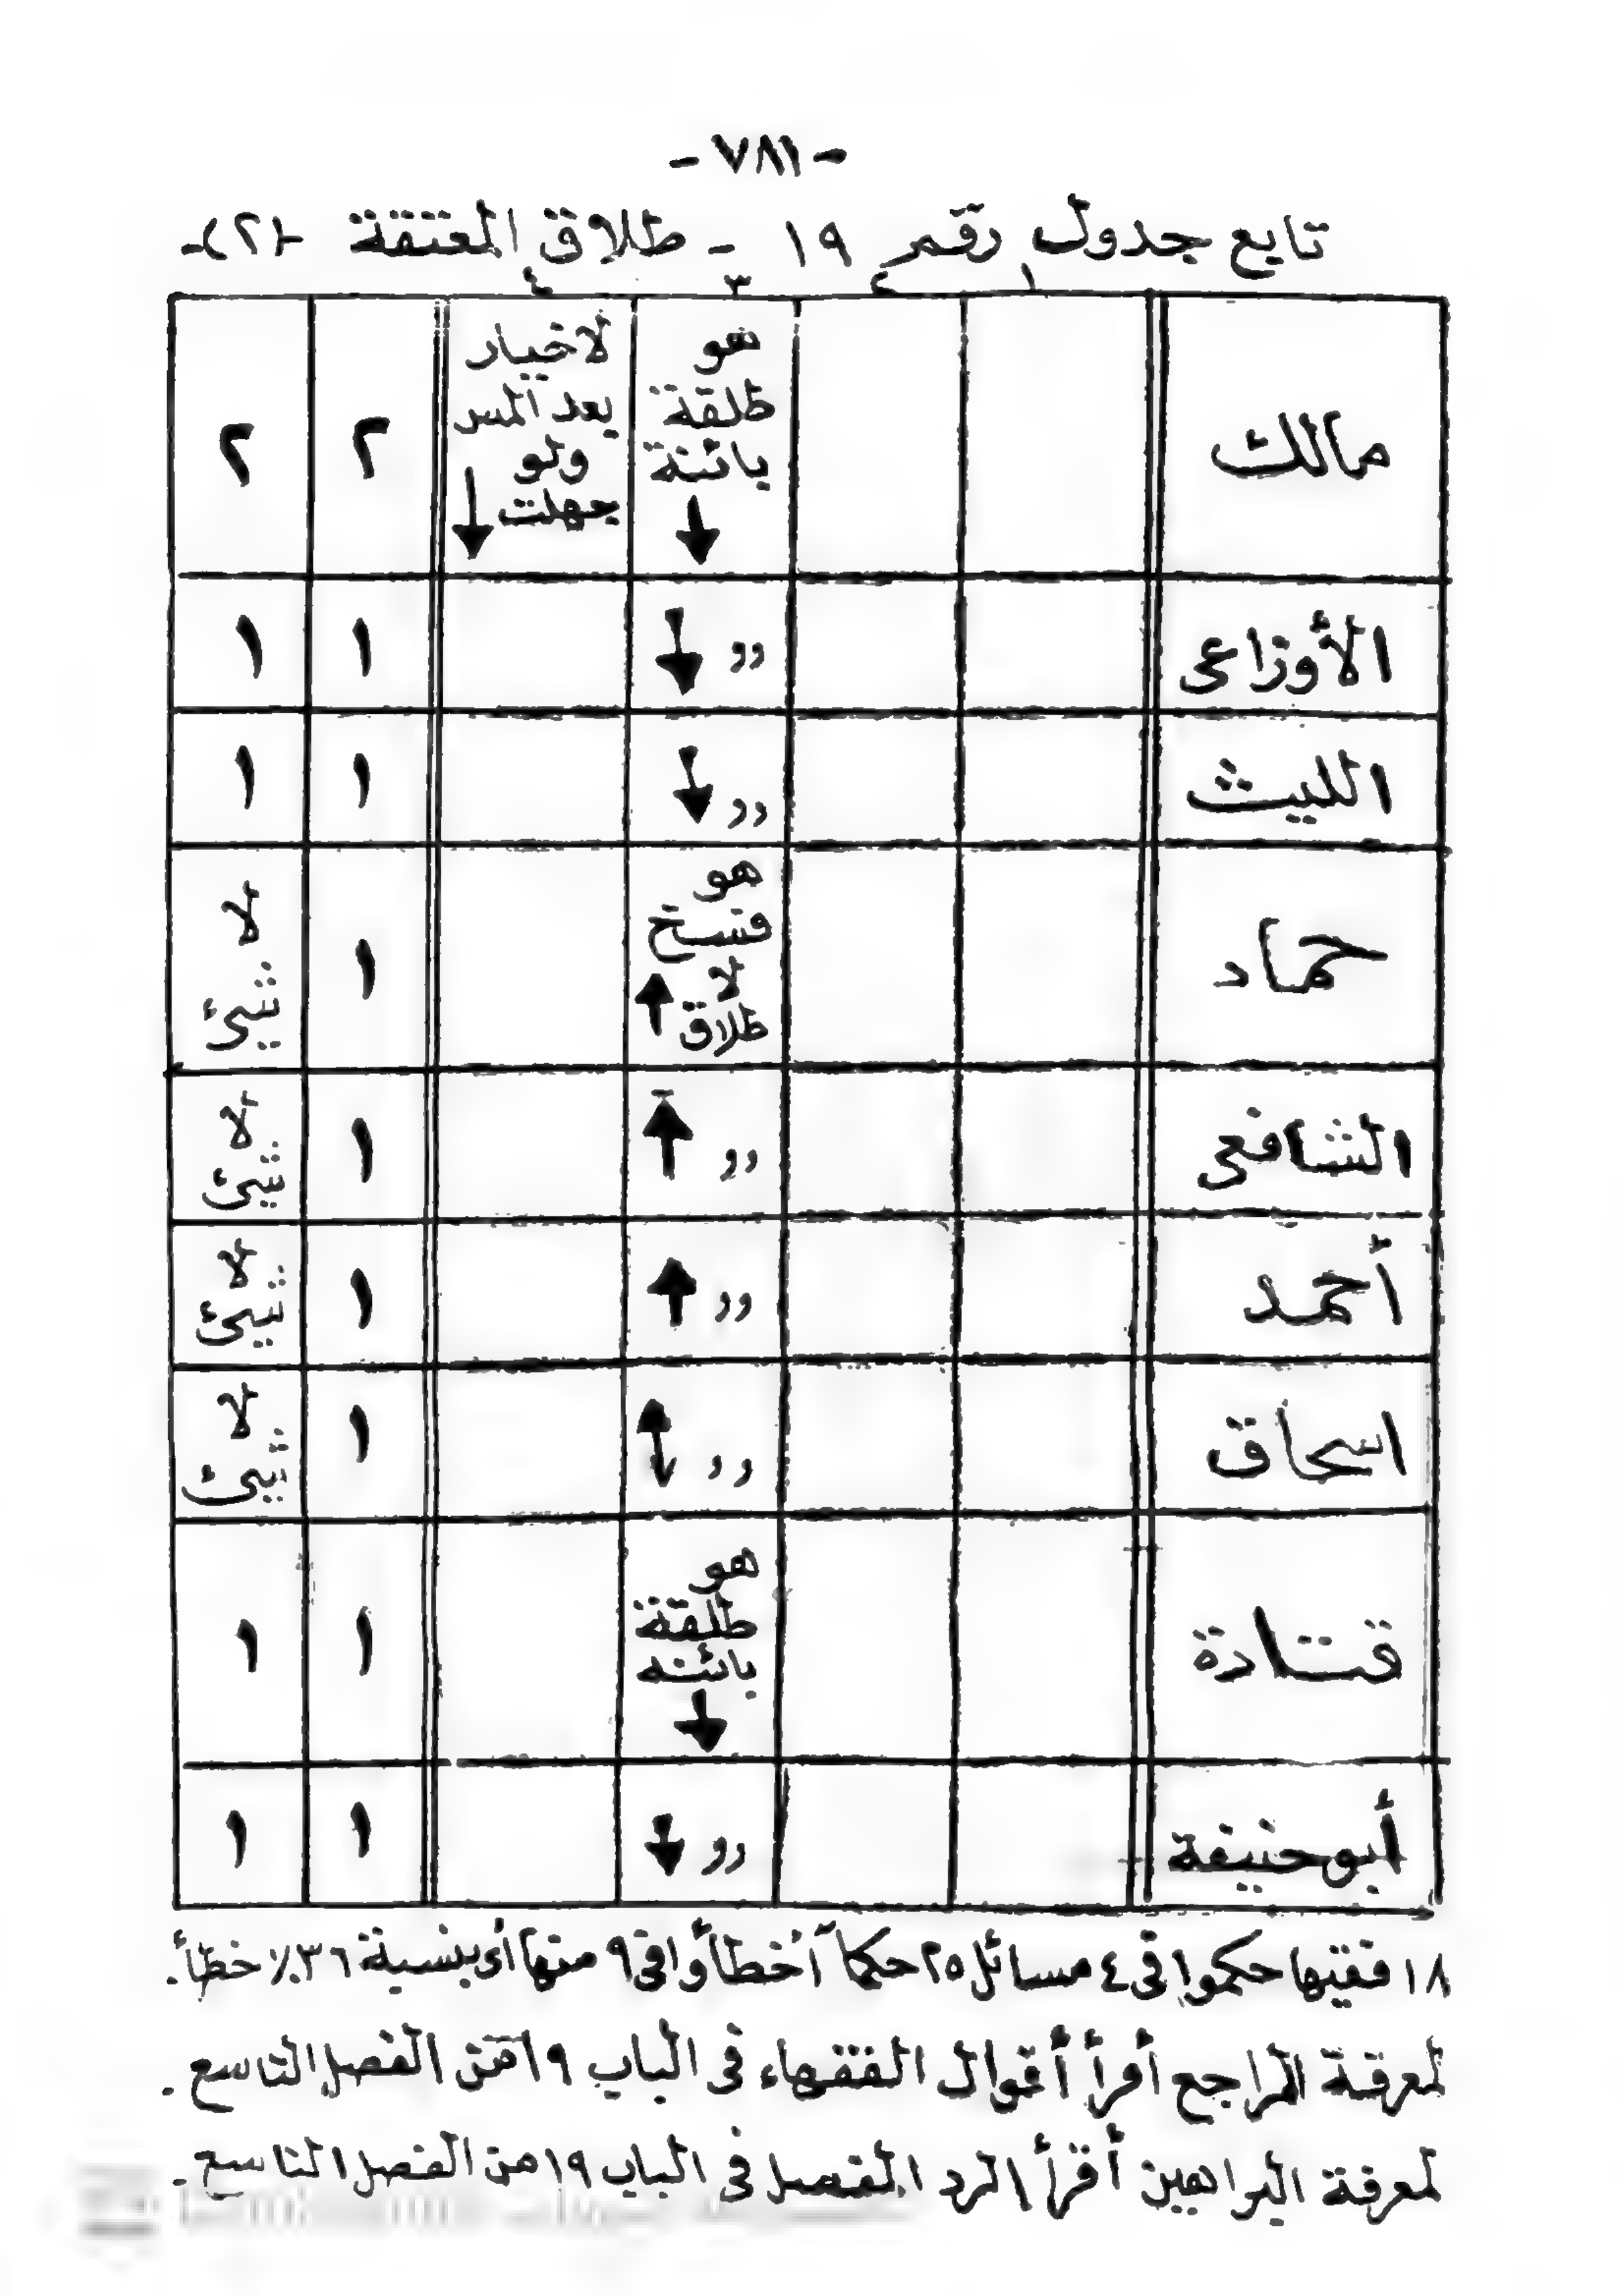 - ٧٨١ -
تابع جدول رقم ١٩ - طلاق المعتقة -(٢)-
١ ٢ ٣ ٤
مالك
هو
طلقة
بائنة
↓
لا خيار
بعد المس
ولو
جهلت ↓
٢
٢
الأوزاعى
,, ↓
١
١
الليث
,, ↓
١
١
حماد
هو
فسخ
لا
طلاق ↑
١
لا شيئ
الشافعى
,, ↑
١
لا شيئ
أحمد
,, ↑
١
لا شيئ
اسحاق
,, ↑
١
لا شيئ
قتادة
هو
طلقة
بائنه
↓
١
١
أبو حنيفة
,, ↓
١
١
١٨ فقيها حكموا فى ٤ مسائل ٢٥ حكماً أخطأوا فى ٩ منها أى بنسبة ٣٦٪ خطأ.
لمعرفة المراجع أقرأ أقوال الفقهاء فى الباب ١٩ من الفصل التاسع.
لمعرفة البراهين أقرأ الرد المفصل فى الباب ١٩ من الفصل التاسع.